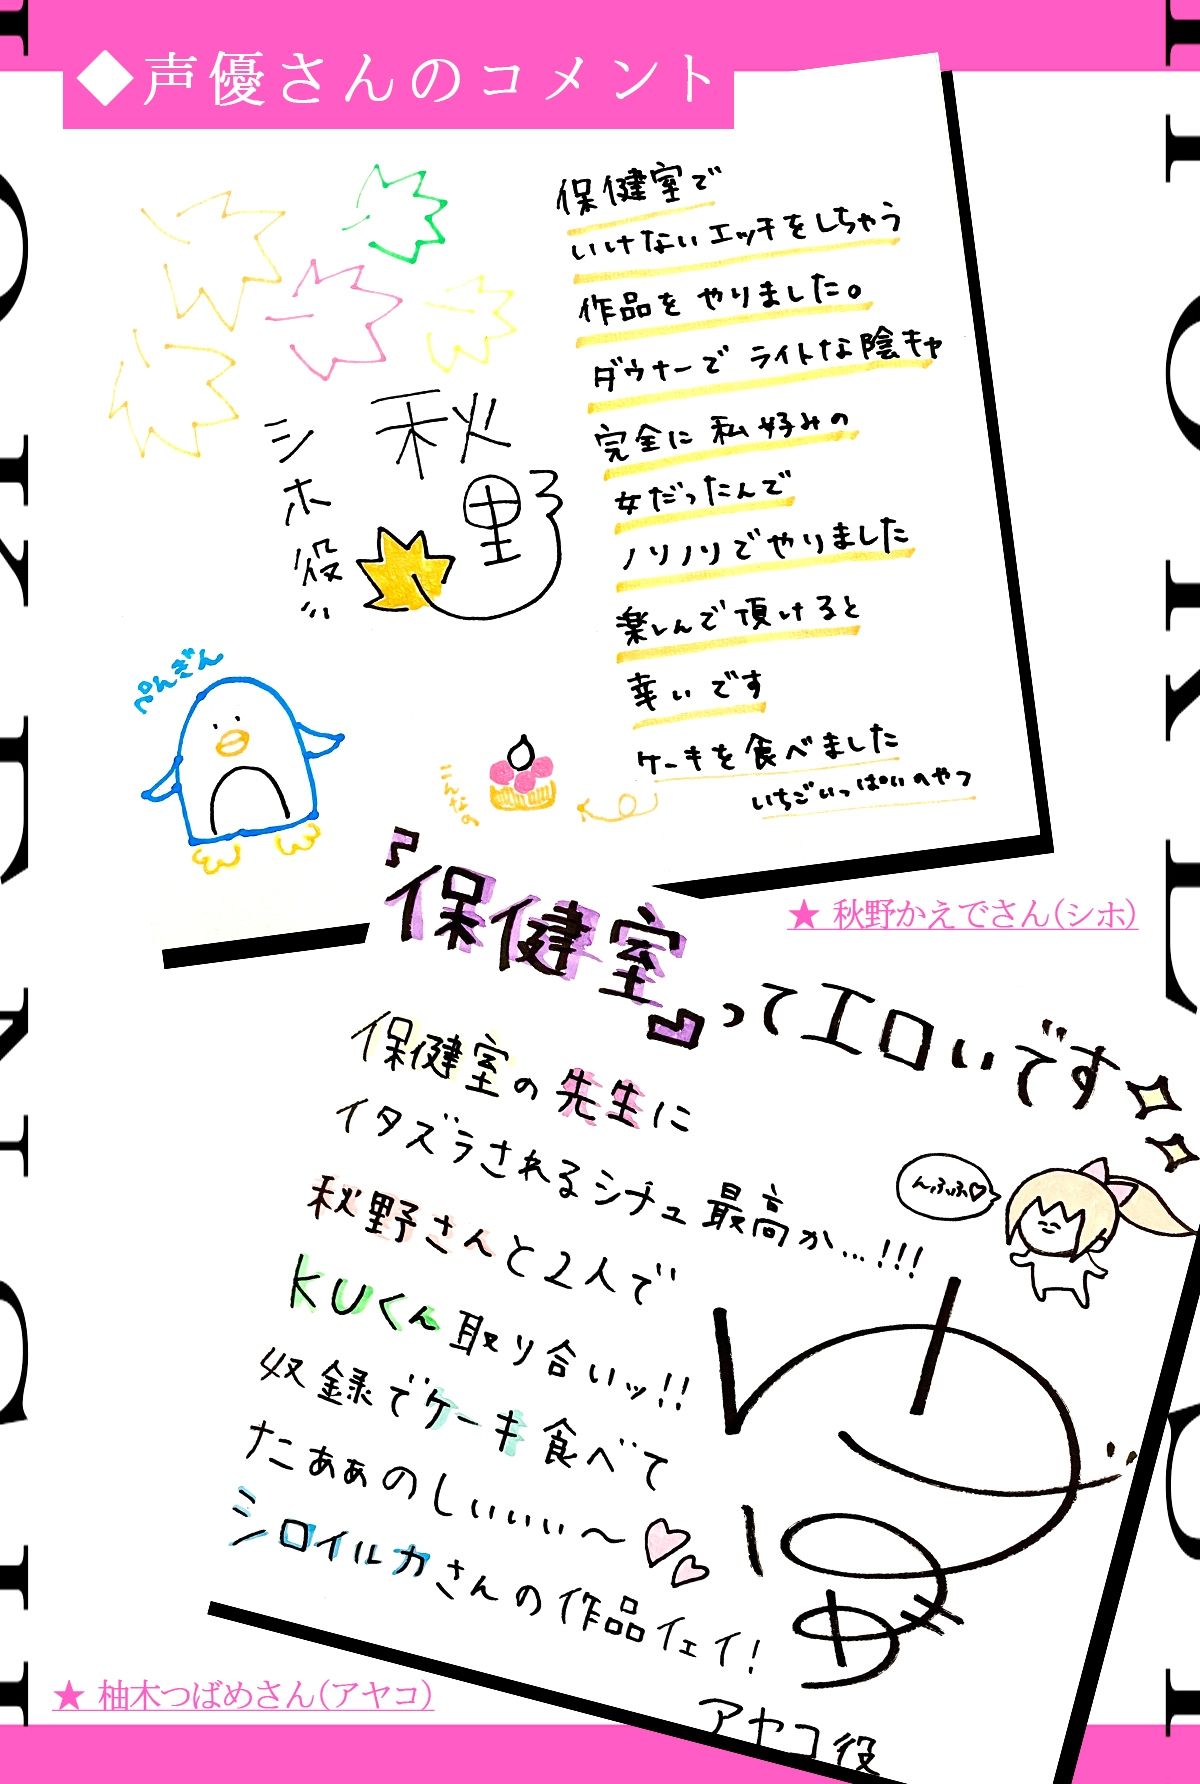 ◆声優さんのコメント
保健室で
いけないエッチをしちゃう
作品をやりました。
ダウナーでライトな陰キャ
完全に私好みの
女だったんで
ノリノリでやりました
楽しんで頂けると
幸いです
ケーキを食べました
いちごいっぱいのやつ
こんなの
秋野
シホ役
ぺんぎん
★ 秋野かえでさん(シホ)
『保健室』ってエロいです
保健室の先生に
イタズラされるシチュ最高か…!!!
んふふ♡
秋野さんと2人で
KUくん取り合いッ!!
収録でケーキ食べて
たこぁぁのしぃぃぃ〜
シロイルカさんの作品イェイ!
アヤコ役
★ 柚木つばめさん(アヤコ)